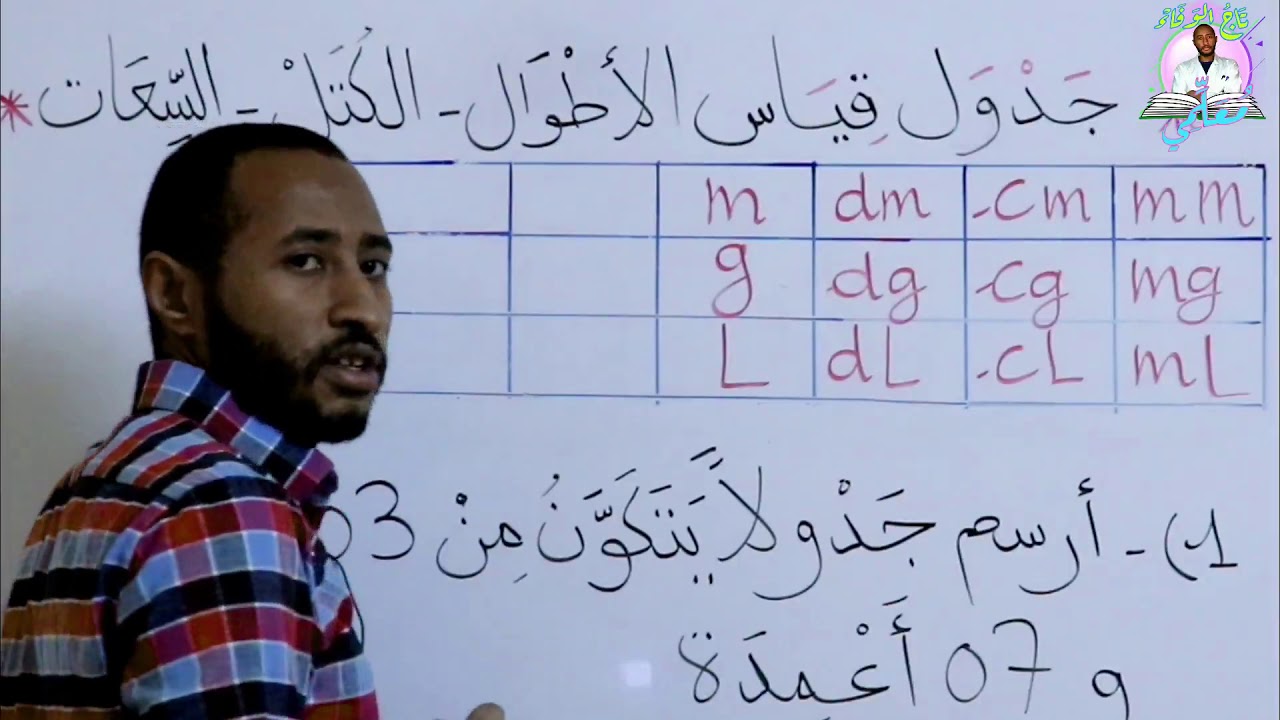 تَاجُ الوَقَار
معلّمي
جَدْوَل قِيَاس الأطْوَال - الكُتَلْ - السِّعَات *
m dm cm mm
g dg cg mg
L dL cL mL
1) - أرسم جَدْولاً يَتَكَوَّنُ مِنْ 03
و 07 أَعْمِدَة